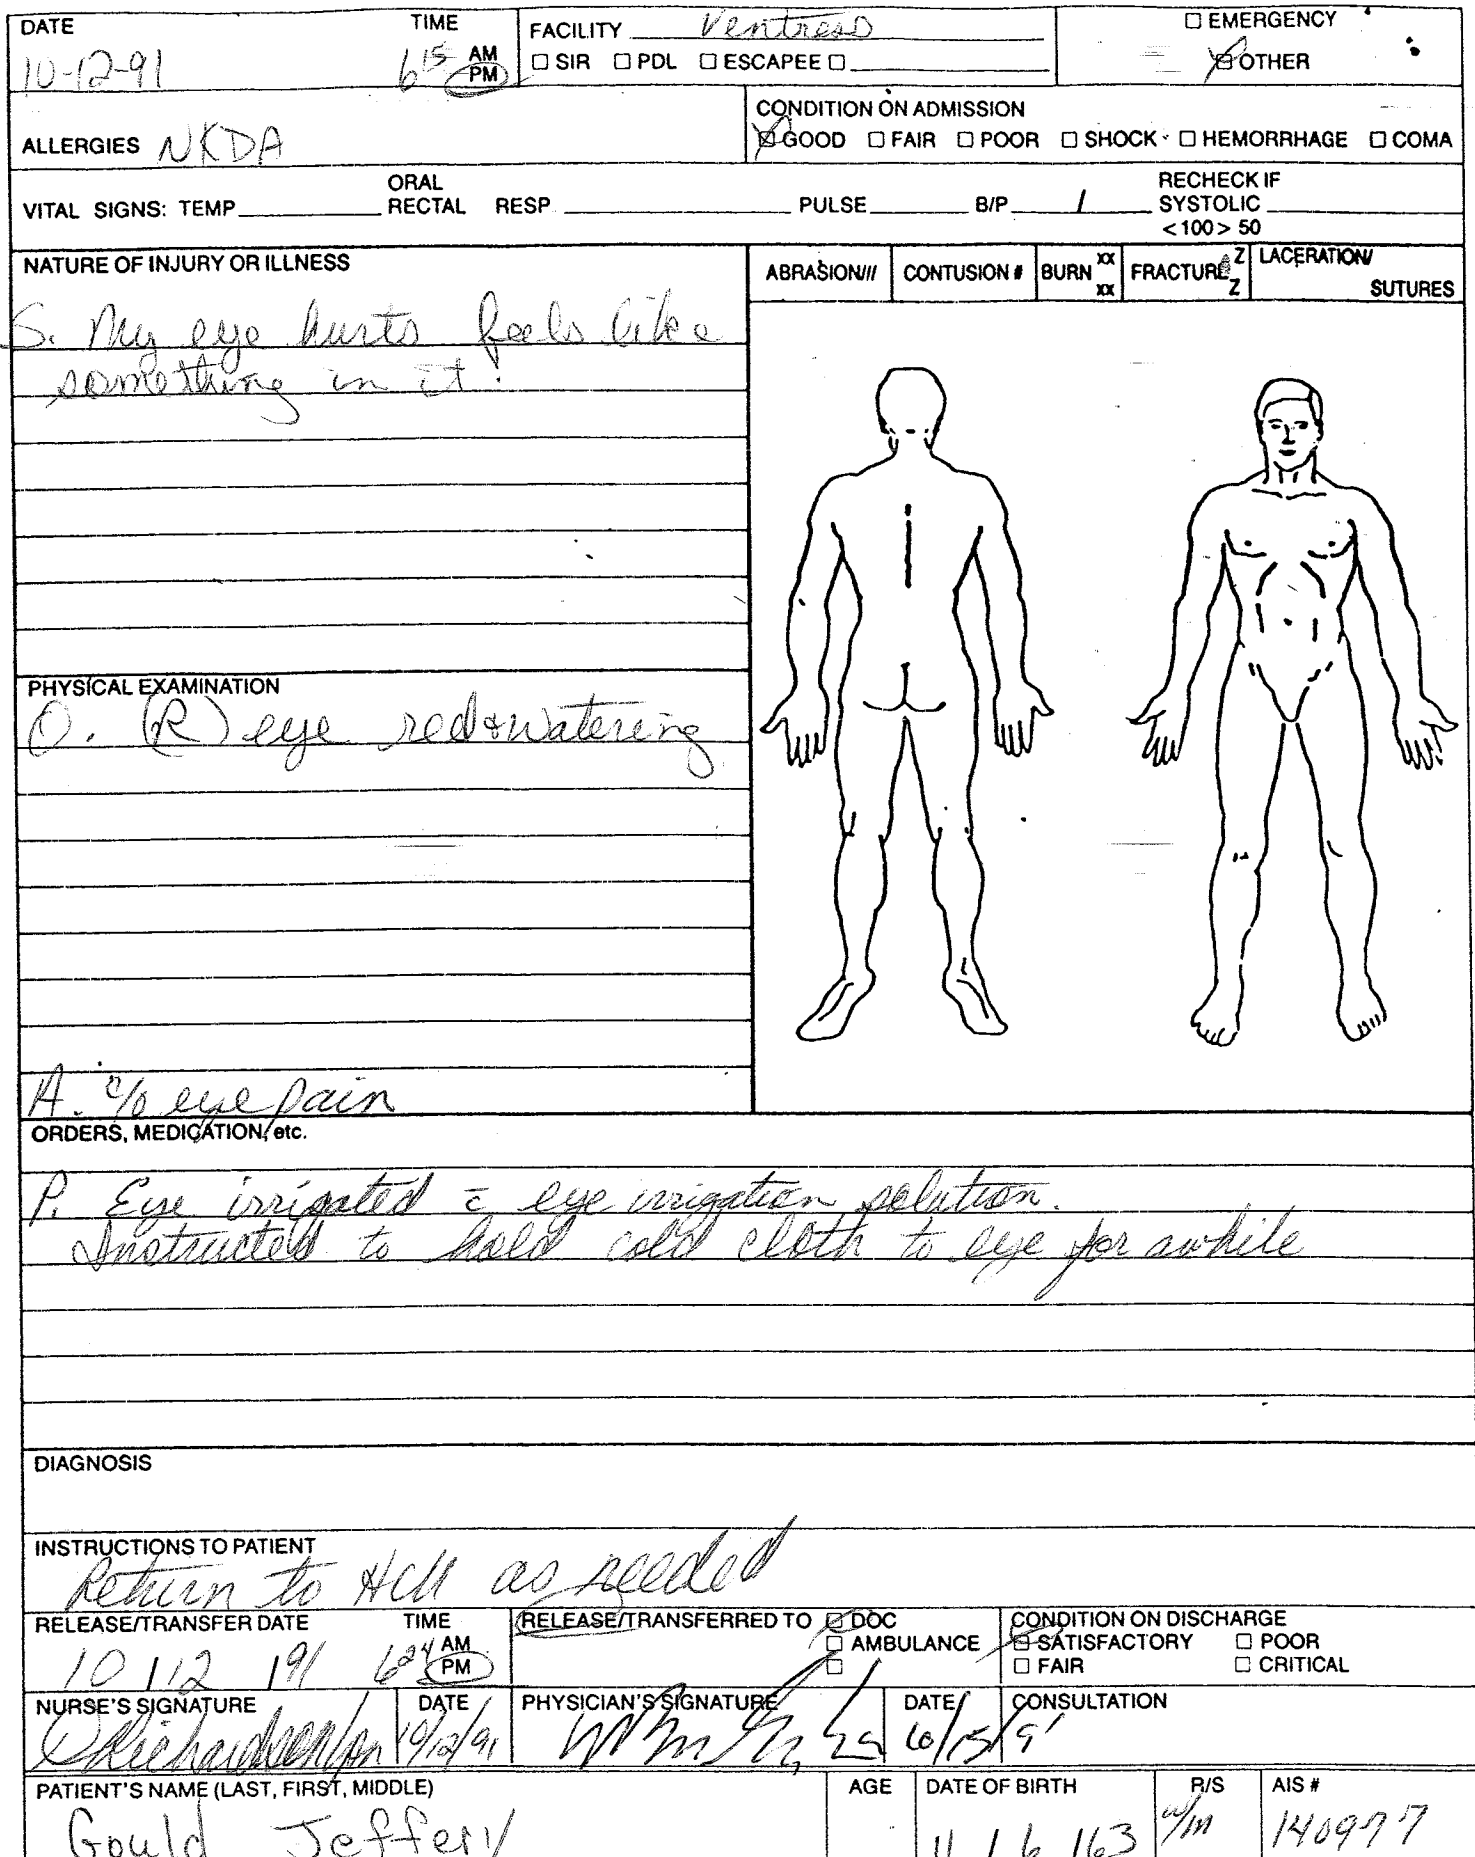 DATE TIME FACILITY Ventress □ EMERGENCY
10-12-91 6 15 AM PM □ SIR □ PDL □ ESCAPEE □ ☒ OTHER
ALLERGIES NKDA
CONDITION ON ADMISSION
☒ GOOD □ FAIR □ POOR □ SHOCK □ HEMORRHAGE □ COMA
VITAL SIGNS: TEMP ORAL RECTAL RESP PULSE B/P / RECHECK IF SYSTOLIC <100> 50
NATURE OF INJURY OR ILLNESS
ABRASION/// CONTUSION # BURN xx xx FRACTURE Z Z LACERATION/ SUTURES
S. My eye hurts feels like
something in it.
PHYSICAL EXAMINATION
O. (R) eye red & watering
A. c/o eye pain
ORDERS, MEDICATION, etc.
P. Eye irrigated c̄ eye irrigation solution.
Instructed to hold cold cloth to eye for awhile
DIAGNOSIS
INSTRUCTIONS TO PATIENT
Return to HCU as needed
RELEASE/TRANSFER DATE TIME RELEASE/TRANSFERRED TO ☒ DOC CONDITION ON DISCHARGE
10 / 12 / 91 6 24 AM PM □ AMBULANCE □ ☒ SATISFACTORY □ POOR
□ FAIR □ CRITICAL
NURSE'S SIGNATURE DATE PHYSICIAN'S SIGNATURE DATE CONSULTATION
Richardson 10/12/91
PATIENT'S NAME (LAST, FIRST, MIDDLE) AGE DATE OF BIRTH R/S AIS #
Gould Jeffery 11 / 6 / 63 w/m 140977